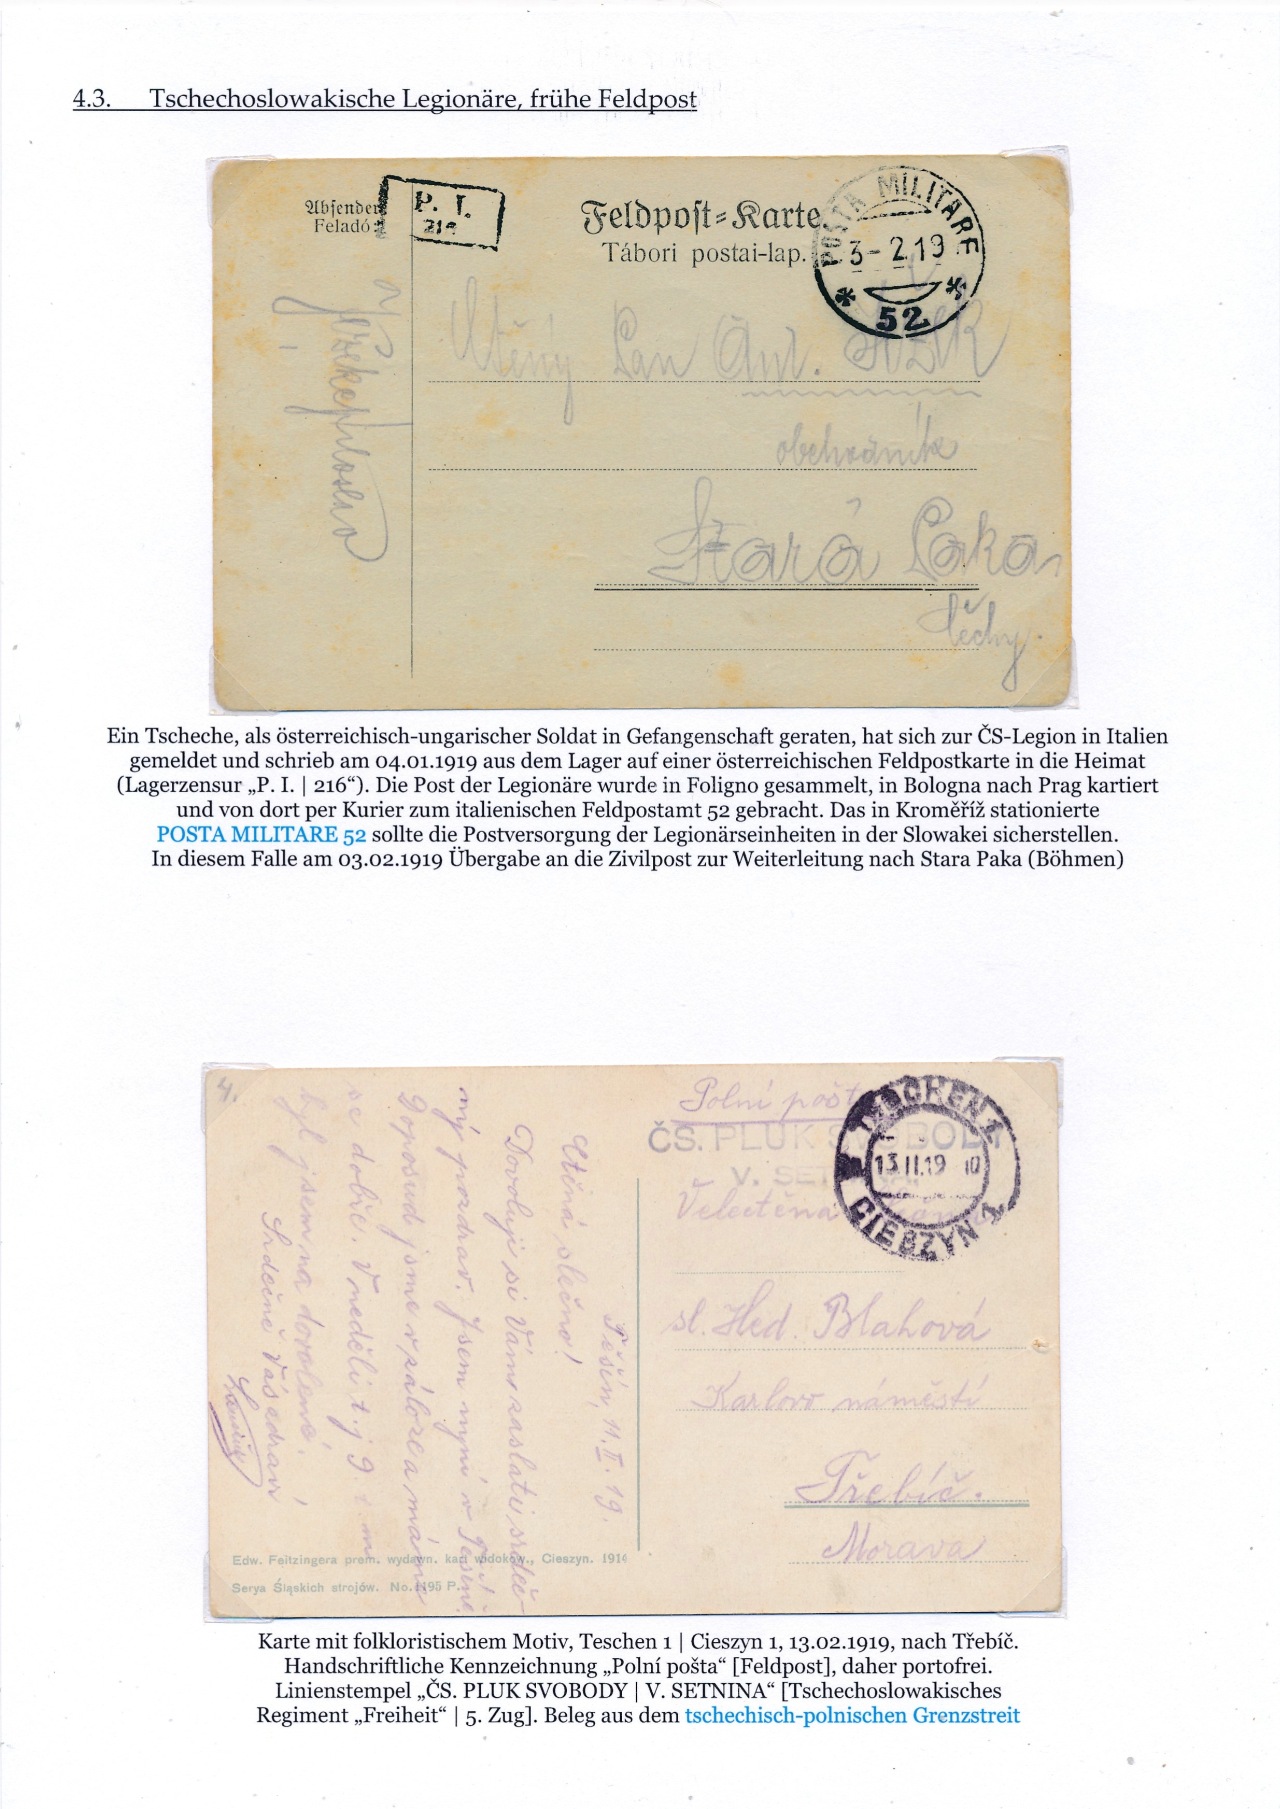 4.3. Tschechoslowakische Legionäre, frühe Feldpost
Absender
Feladó:
P. I.
Feldpost=Karte
Tábori postai-lap.
POSTA MILITARE
3-2.19
52
Ctěný Pan Ant.
obchodník
Stará Paka
Čechy.
Ein Tscheche, als österreichisch-ungarischer Soldat in Gefangenschaft geraten, hat sich zur ČS-Legion in Italien
gemeldet und schrieb am 04.01.1919 aus dem Lager auf einer österreichischen Feldpostkarte in die Heimat
(Lagerzensur „P. I. | 216“). Die Post der Legionäre wurde in Foligno gesammelt, in Bologna nach Prag kartiert
und von dort per Kurier zum italienischen Feldpostamt 52 gebracht. Das in Kroměříž stationierte
POSTA MILITARE 52 sollte die Postversorgung der Legionärseinheiten in der Slowakei sicherstellen.
In diesem Falle am 03.02.1919 Übergabe an die Zivilpost zur Weiterleitung nach Stara Paka (Böhmen)
4.
Těšín, 11.II.19.
Ctěná slečno!
Dovoluji si Vám zaslati srdeč-
ný pozdrav. Jsem nyní v Těšíně.
Doposud jsme v záloze a máme
se dobře. V neděli t.j. 9.
byl jsem na dovolené.
Srdečně Vás zdraví
Edw. Feitzingera prem. wydawn. kart widoków., Cieszyn. 191
Serya Śląskich strojów. No. 1195 P.
Polní pošta
ČS. PLUK SVOBODY
V. SETNINA
TESCHEN 1
13.II.19 10
CIESZYN 1
Velectěná
sl. Hed. Blahová
Karlovo náměstí
Třebíč.
Morava
Karte mit folkloristischem Motiv, Teschen 1 | Cieszyn 1, 13.02.1919, nach Třebíč.
Handschriftliche Kennzeichnung „Polní pošta“ [Feldpost], daher portofrei.
Linienstempel „ČS. PLUK SVOBODY | V. SETNINA“ [Tschechoslowakisches
Regiment „Freiheit“ | 5. Zug]. Beleg aus dem tschechisch-polnischen Grenzstreit